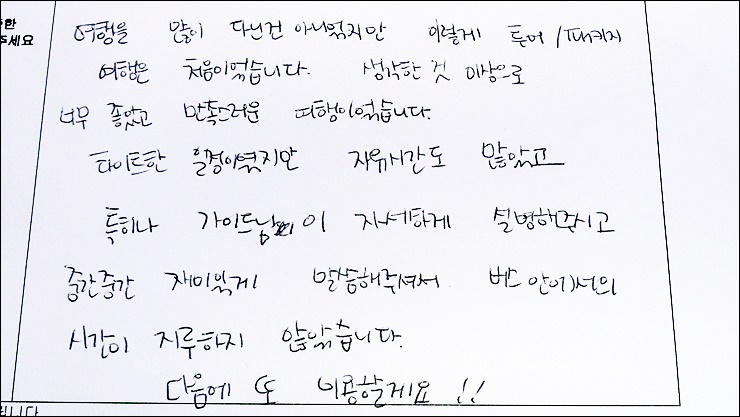 한
주세요
여행을 많이 다닌건 아니었지만 이렇게 투어/패키지
여행은 처음이었습니다. 생각한 것 이상으로
너무 좋았고 만족스러운 여행이었습니다.
타이트한 일정이었지만 자유시간도 많았고
특히나 가이드님이 자세하게 설명해주시고
중간중간 재미있게 말씀해주셔서 버스 안에서의
시간이 지루하지 않았습니다.
다음에 또 이용할게요!!
니다